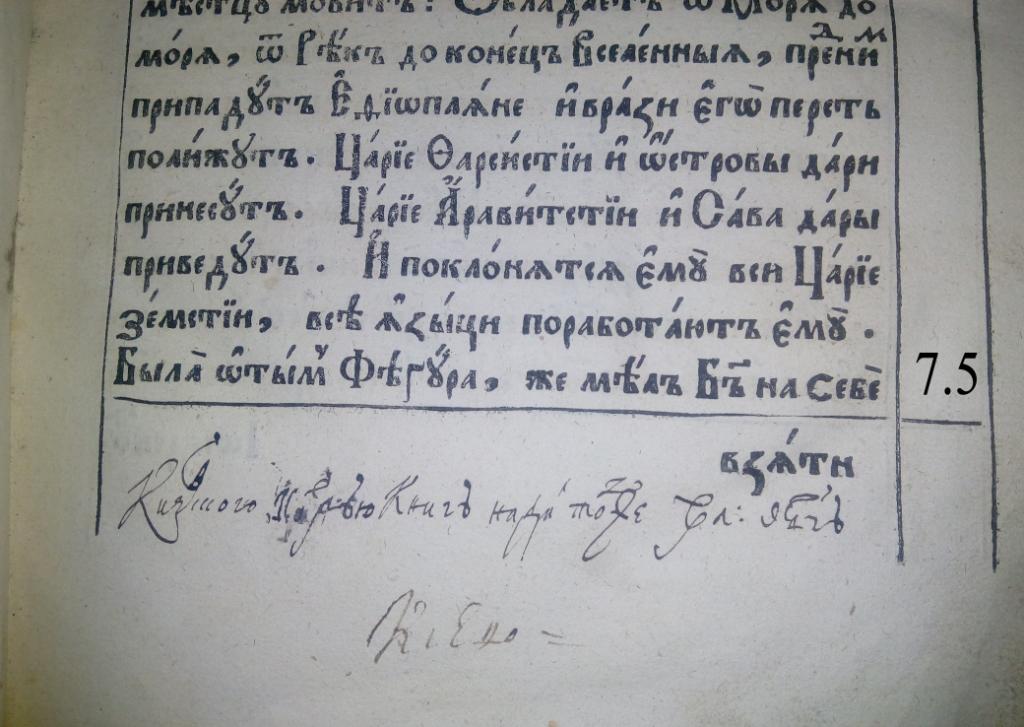 мѣстцу мовитъ: Ѡбладаетъ ѿ Моря до
мо́ря, ѿ Рѣ́къ до коне́цъ Вселе́нныѧ, пре́ни
припаду́тъ Е҆ѳїѡпла́не и҆ врази е҆гѡ̀ персть
поли́жутъ. Ца́рїе Ѳарси́стїи и҆ ѡ҆́строви да́ри
принесу́тъ. Ца́рїе А҆рави́тстїи и҆ Са́ва да́ры
приведу́тъ. И҆ покло́нятся е҆му̀ вси Ца́рїе
зе́мстїи, всѣ̀ я҆зы́ци поработа́ютъ е҆му̀.
Была̀ ѡ҆ ты́мъ Фѣґу́ра, же мѣ́лъ Бг҃ъ на себѐ
7.5
взя́ти
Книгъ